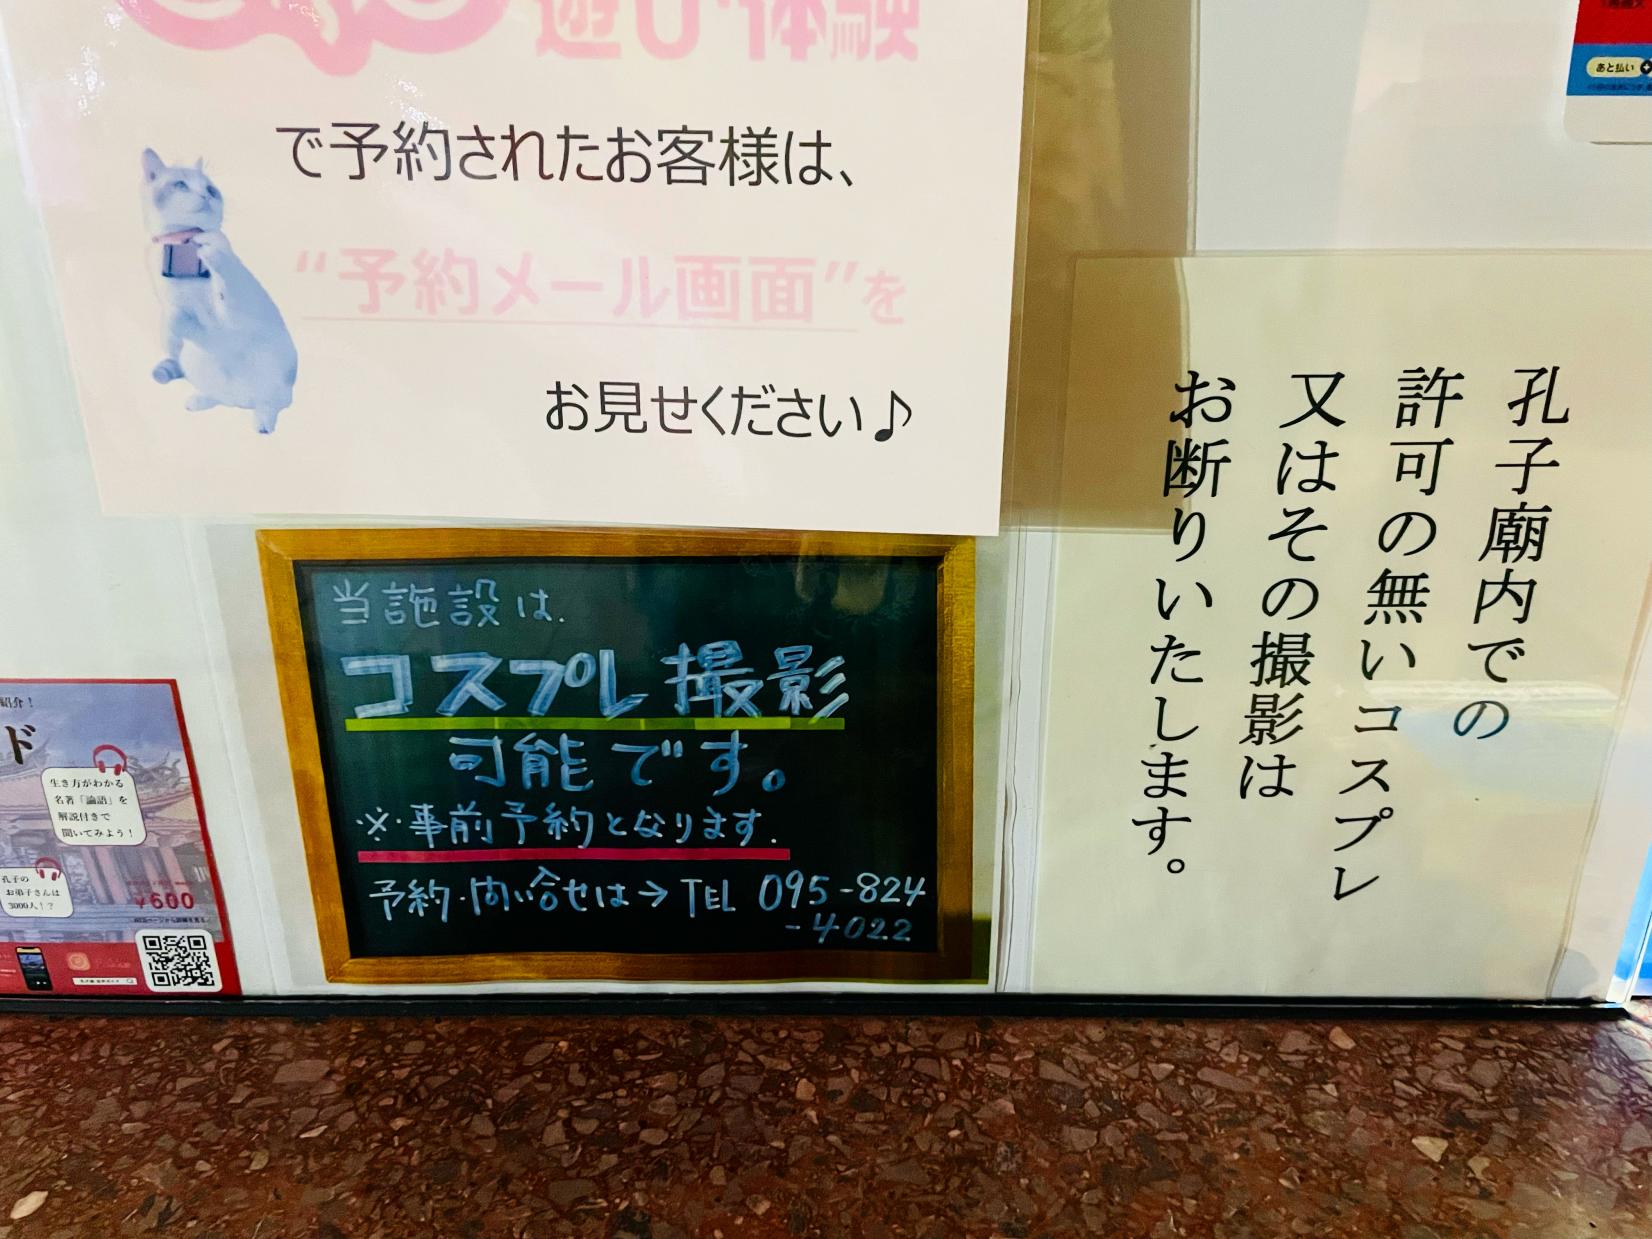 遊び体験
で予約されたお客様は、
“予約メール画面”を
お見せください♪
当施設は.
コスプレ撮影
可能です。
※事前予約となります.
予約・問い合せは→TEL 095-824
-4022
孔子廟内での
許可の無いコスプレ
又はその撮影は
お断りいたします。
あと払い
紹介！
ド
生き方がわかる
名著「論語」を
解説付きで
聞いてみよう！
孔子の
お弟子さんは
3000人！？
¥600